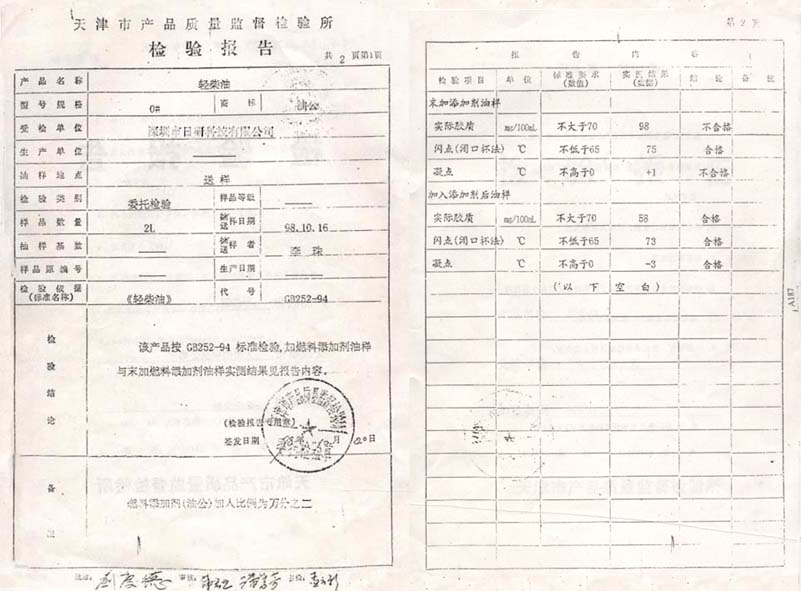 天津市产品质量监督检验所
检验报告
共 2 页第1页
产品名称 轻柴油
型号规格 0# 商标 油公
受检单位 深圳市日研科技有限公司
生产单位 ——
抽样地点 送样
检验类别 委托检验 样品等级 ——
样品数量 2L 送样日期 98.10.16
抽样基数 —— 送样者 李珠
样品原编号 —— 生产日期 ——
检验依据(标准名称) 《轻柴油》 代号 GB252-94
检验结论
该产品按 GB252-94 标准检验,加燃料添加剂油样
与未加燃料添加剂油样实测结果见报告内容。
(检验报告专用章)
签发日期 年 月 20日
备注
燃料添加剂(油公)加入比例为万分之二
批准: 审核: 主检:
第 2 页
报告内容
检验项目 单位 标准要求(数值) 实测结果(数据) 结论 备注
未加添加剂油样
实际胶质 mg/100mL 不大于70 98 不合格
闪点(闭口杯法) ℃ 不低于65 75 合格
凝点 ℃ 不高于0 +1 不合格
加入添加剂后油样
实际胶质 mg/100mL 不大于70 58 合格
闪点(闭口杯法) ℃ 不低于65 73 合格
凝点 ℃ 不高于0 -3 合格
(以下空白)
A187